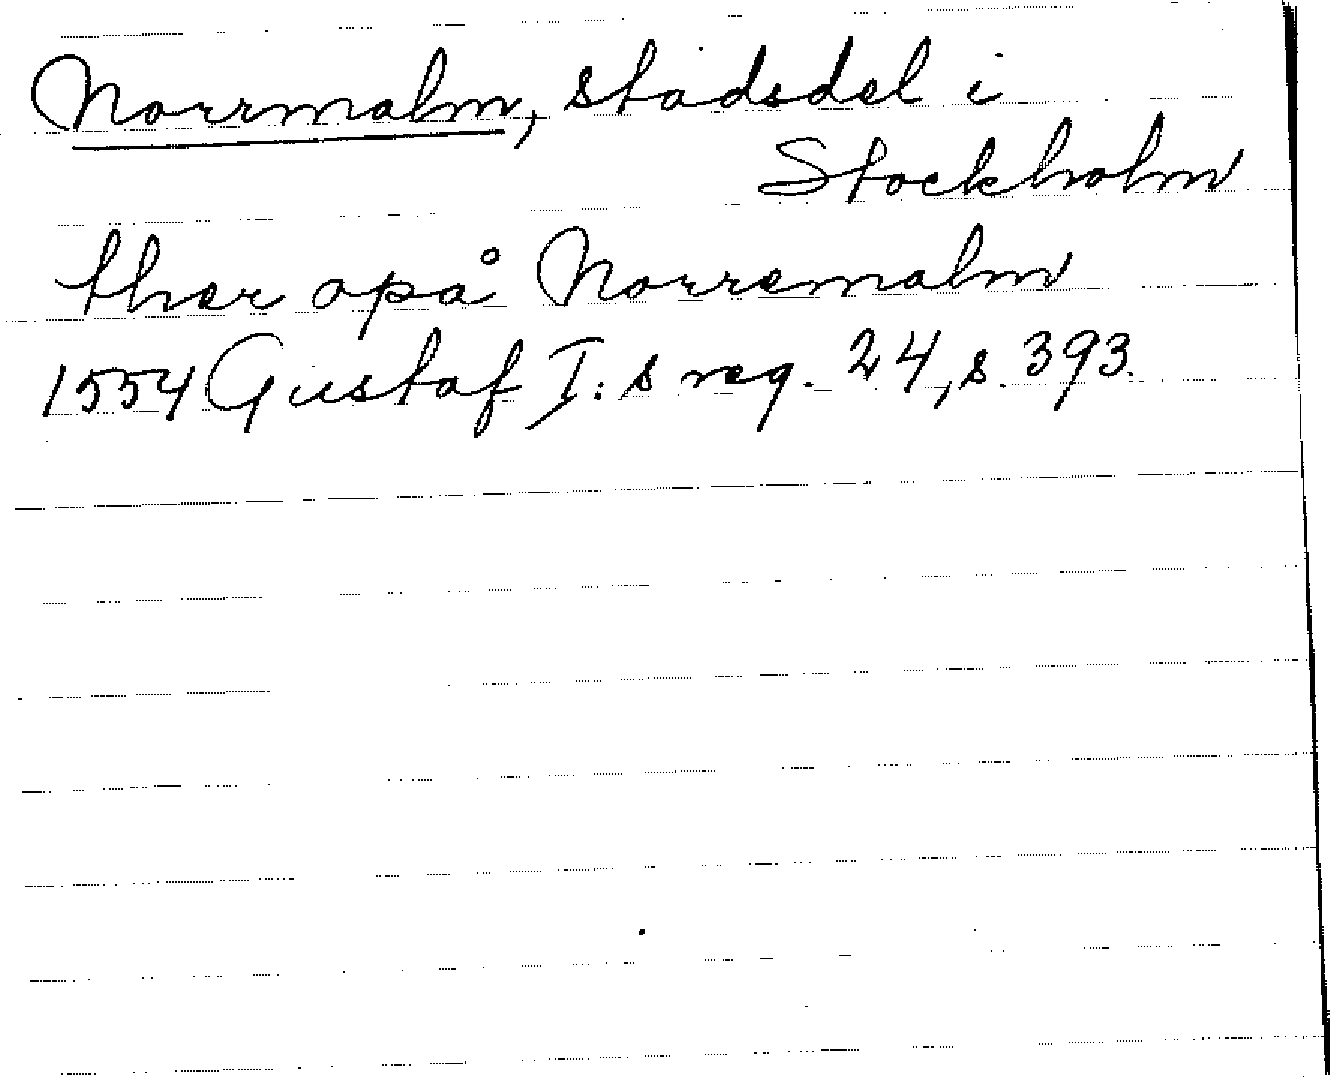 Norrmalm, stadsdel i
Stockholm
ther opå Norremalm
1554 Gustaf I:s reg. 24, s. 393.